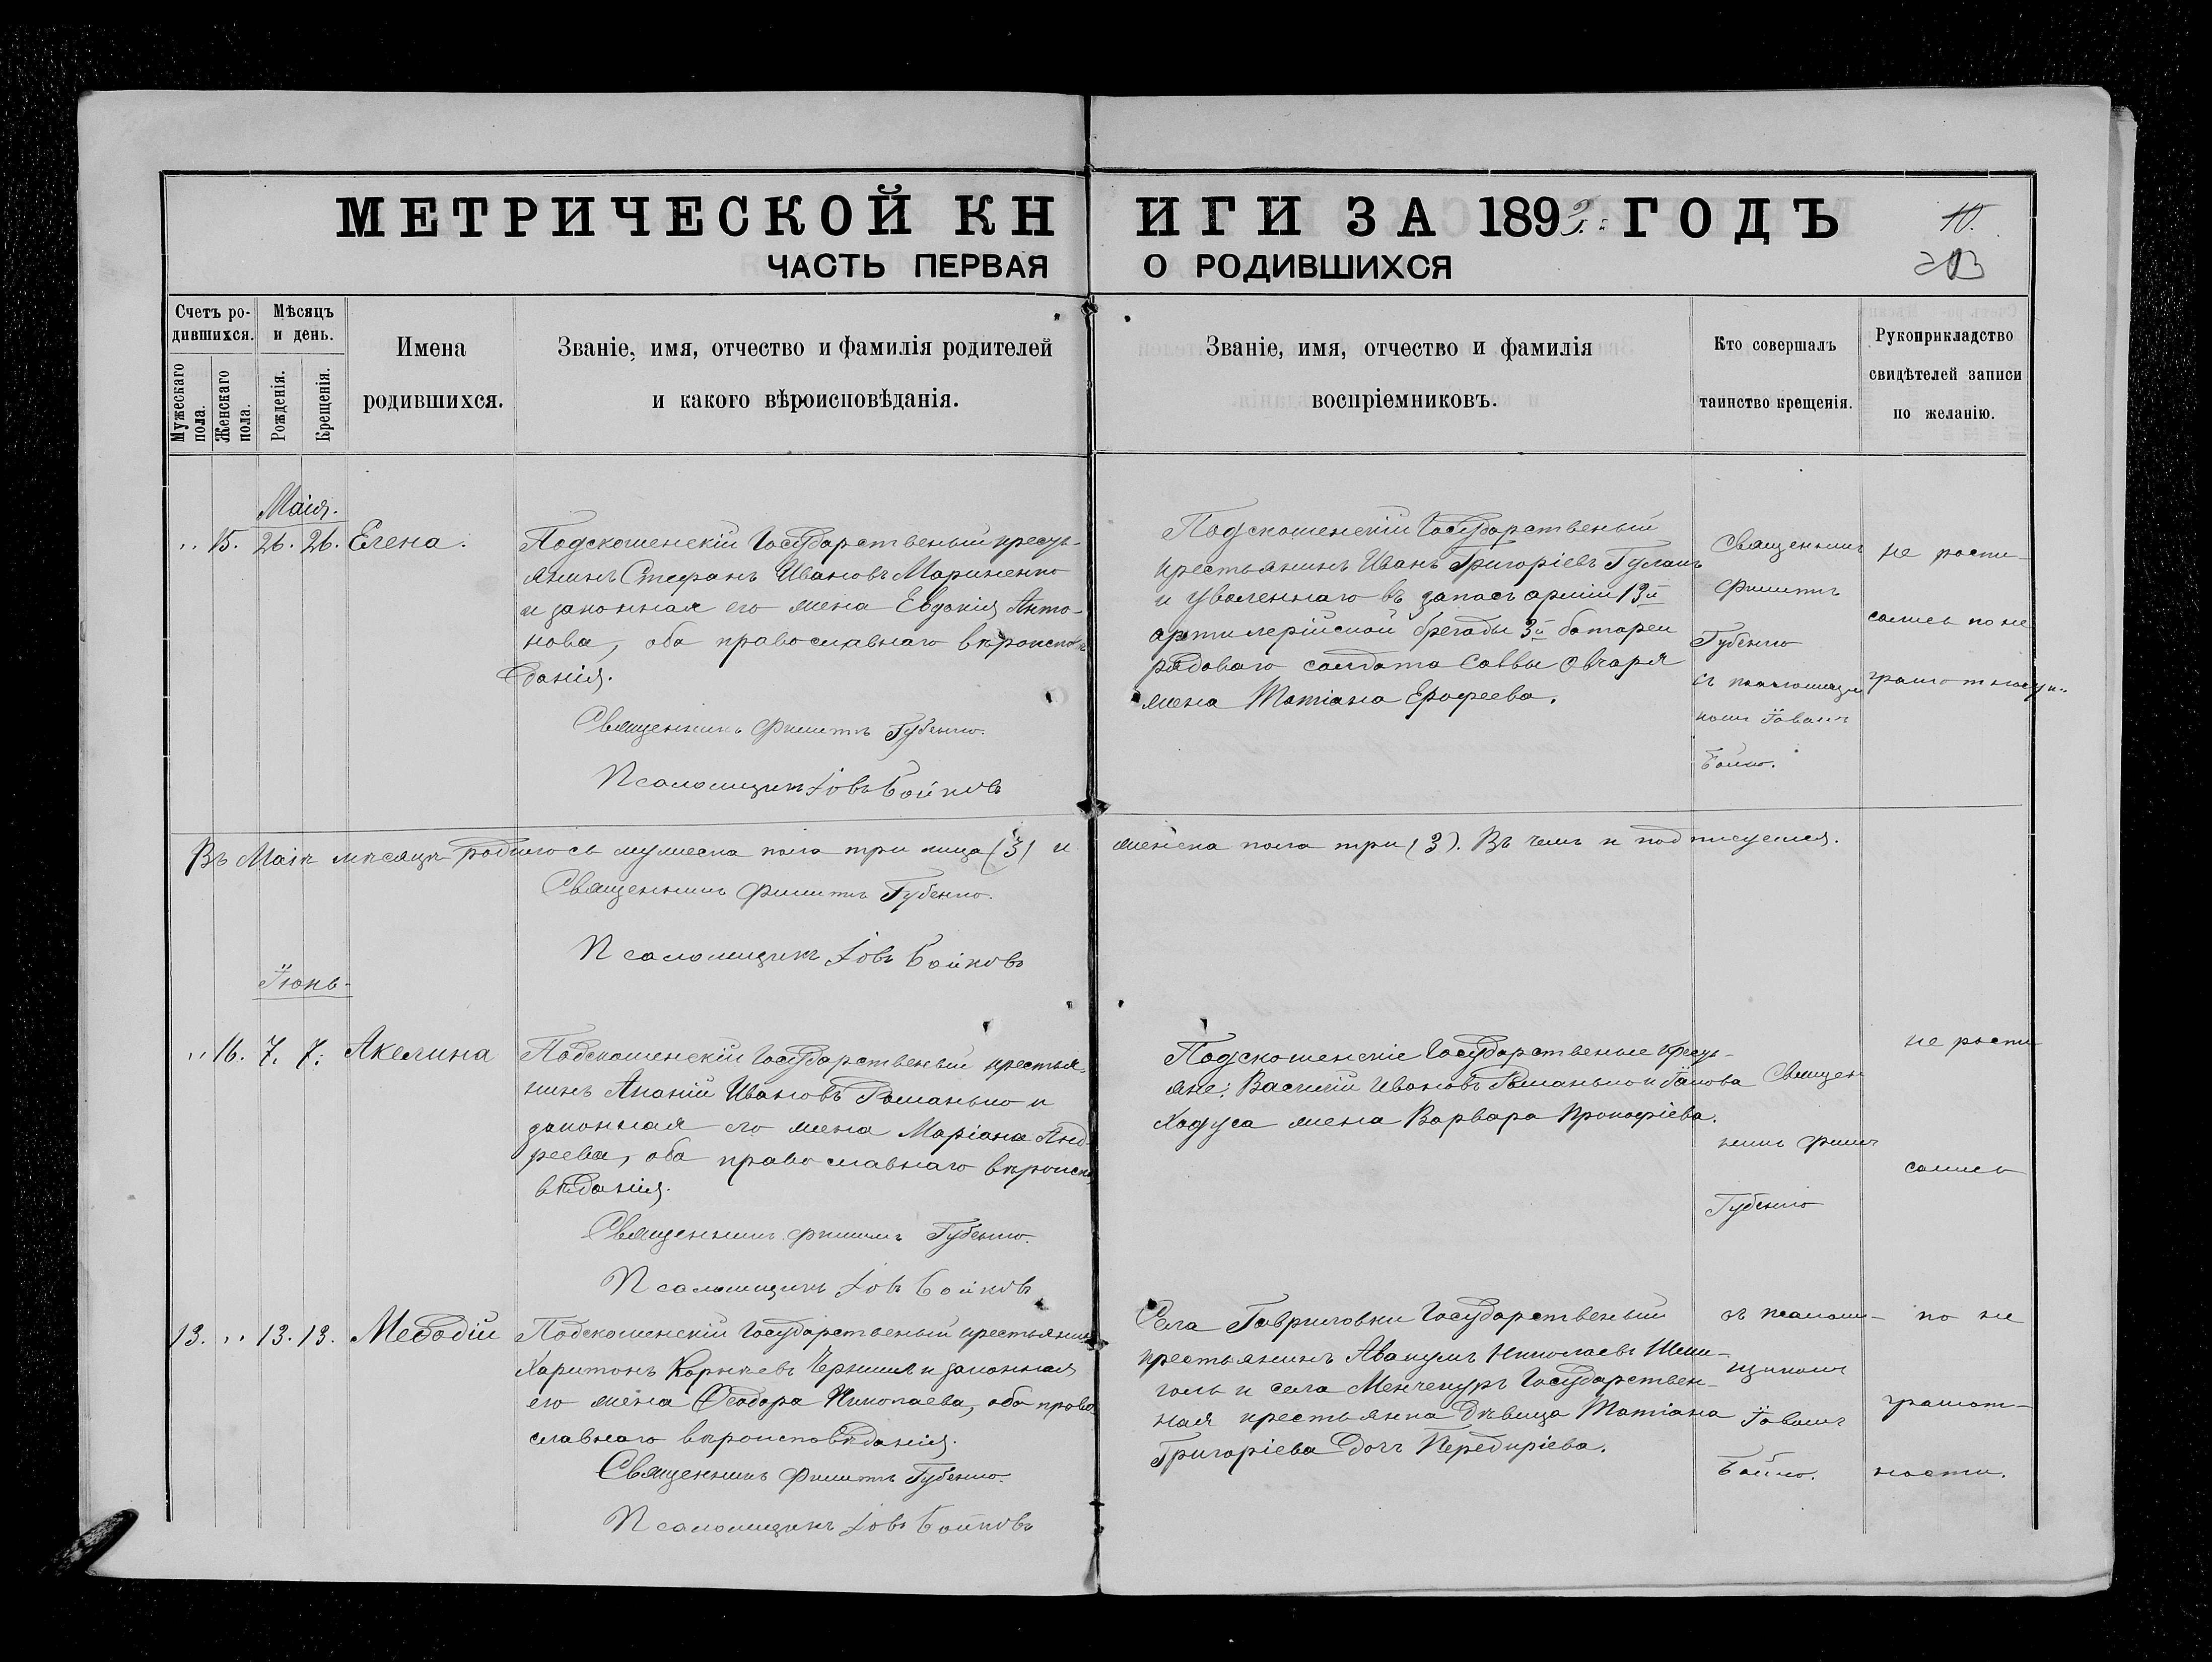 МЕТРИЧЕСКОЙ КНИГИ ЗА 1892 ГОДЪ
10.
203
ЧАСТЬ ПЕРВАЯ О РОДИВШИХСЯ
Счетъ родившихся.
Мужескаго пола.
Женскаго пола.
Мѣсяцъ и день.
Рожденія.
Крещенія.
Имена
родившихся.
Званіе, имя, отчество и фамилія родителей
и какого вѣроисповѣданія.
Званіе, имя, отчество и фамилія
воспріемниковъ.
Кто совершалъ
таинство крещенія.
Рукоприкладство
свидѣтелей записи
по желанію.
Маія.
" 15. 26. 26. Елена.
Подскошенскій Государственый кресть-
янинъ Стефанъ Ивановъ Мариненко
и законная его жена Евдокія Анто-
нова, оба православнаго вѣроисповѣ
данія.
Священникъ Филиппъ Губенко.
Псаломщикъ Іовъ Бойковъ
Подскошенскій Государственый
крестьянинъ Иванъ Григоріевъ Гулакъ
и уволеннаго въ запасъ арміи 13й
артилерійской бригады 3й батареи
рядоваго солдата Саввы Овчаря
жена Татіана Ерофеева.
Священникъ
Филиппъ
Губенко
съ псаломщи
комъ Іовомъ
Бойко.
не роспи-
сались по не
грамотности.
Въ Маіѣ мѣсяцѣ родилось мужеска пола три лица (3) и женска пола три (3). Въ чемъ и подписуемся.
Священникъ Филиппъ Губенко.
Псаломщикъ Іовъ Бойковъ
Іюнь-
" 16. 7. 7. Акелина
Подскошенскій Государственый крестья-
нинъ Ананій Ивановъ Романько и
законная его жена Маріана Анд-
реева, оба православнаго вѣроиспо
вѣданія.
Священникъ Филиппъ Губенко.
Псаломщикъ Іовъ Бойковъ
Подскошенскіе Государственые кресть-
яне: Василій Ивановъ Романько и Іакова
Ходуса жена Варвара Прокофіева.
Священ
никъ Филип
Губенко
не роспи
сались
13. " 13. 13. Меѳодій
Подскошенскій Государственый крестьянинъ
Харитонъ Корнѣевъ Чернышъ и законная
его жена Ѳеодора Николаева, оба право
славнаго вѣроисповѣданія.
Священникъ Филиппъ Губенко.
Псаломщикъ Іовъ Бойковъ
Села Гавриловки Государственый
крестьянинъ Авакумъ Николаевъ
и села Менчекуръ Государствен-
ная крестьянка дѣвица Татіана
Григоріева дочь Передиріева.
съ псалом-
щикомъ
Іовомъ
Бойко.
по не
грамот-
ности.